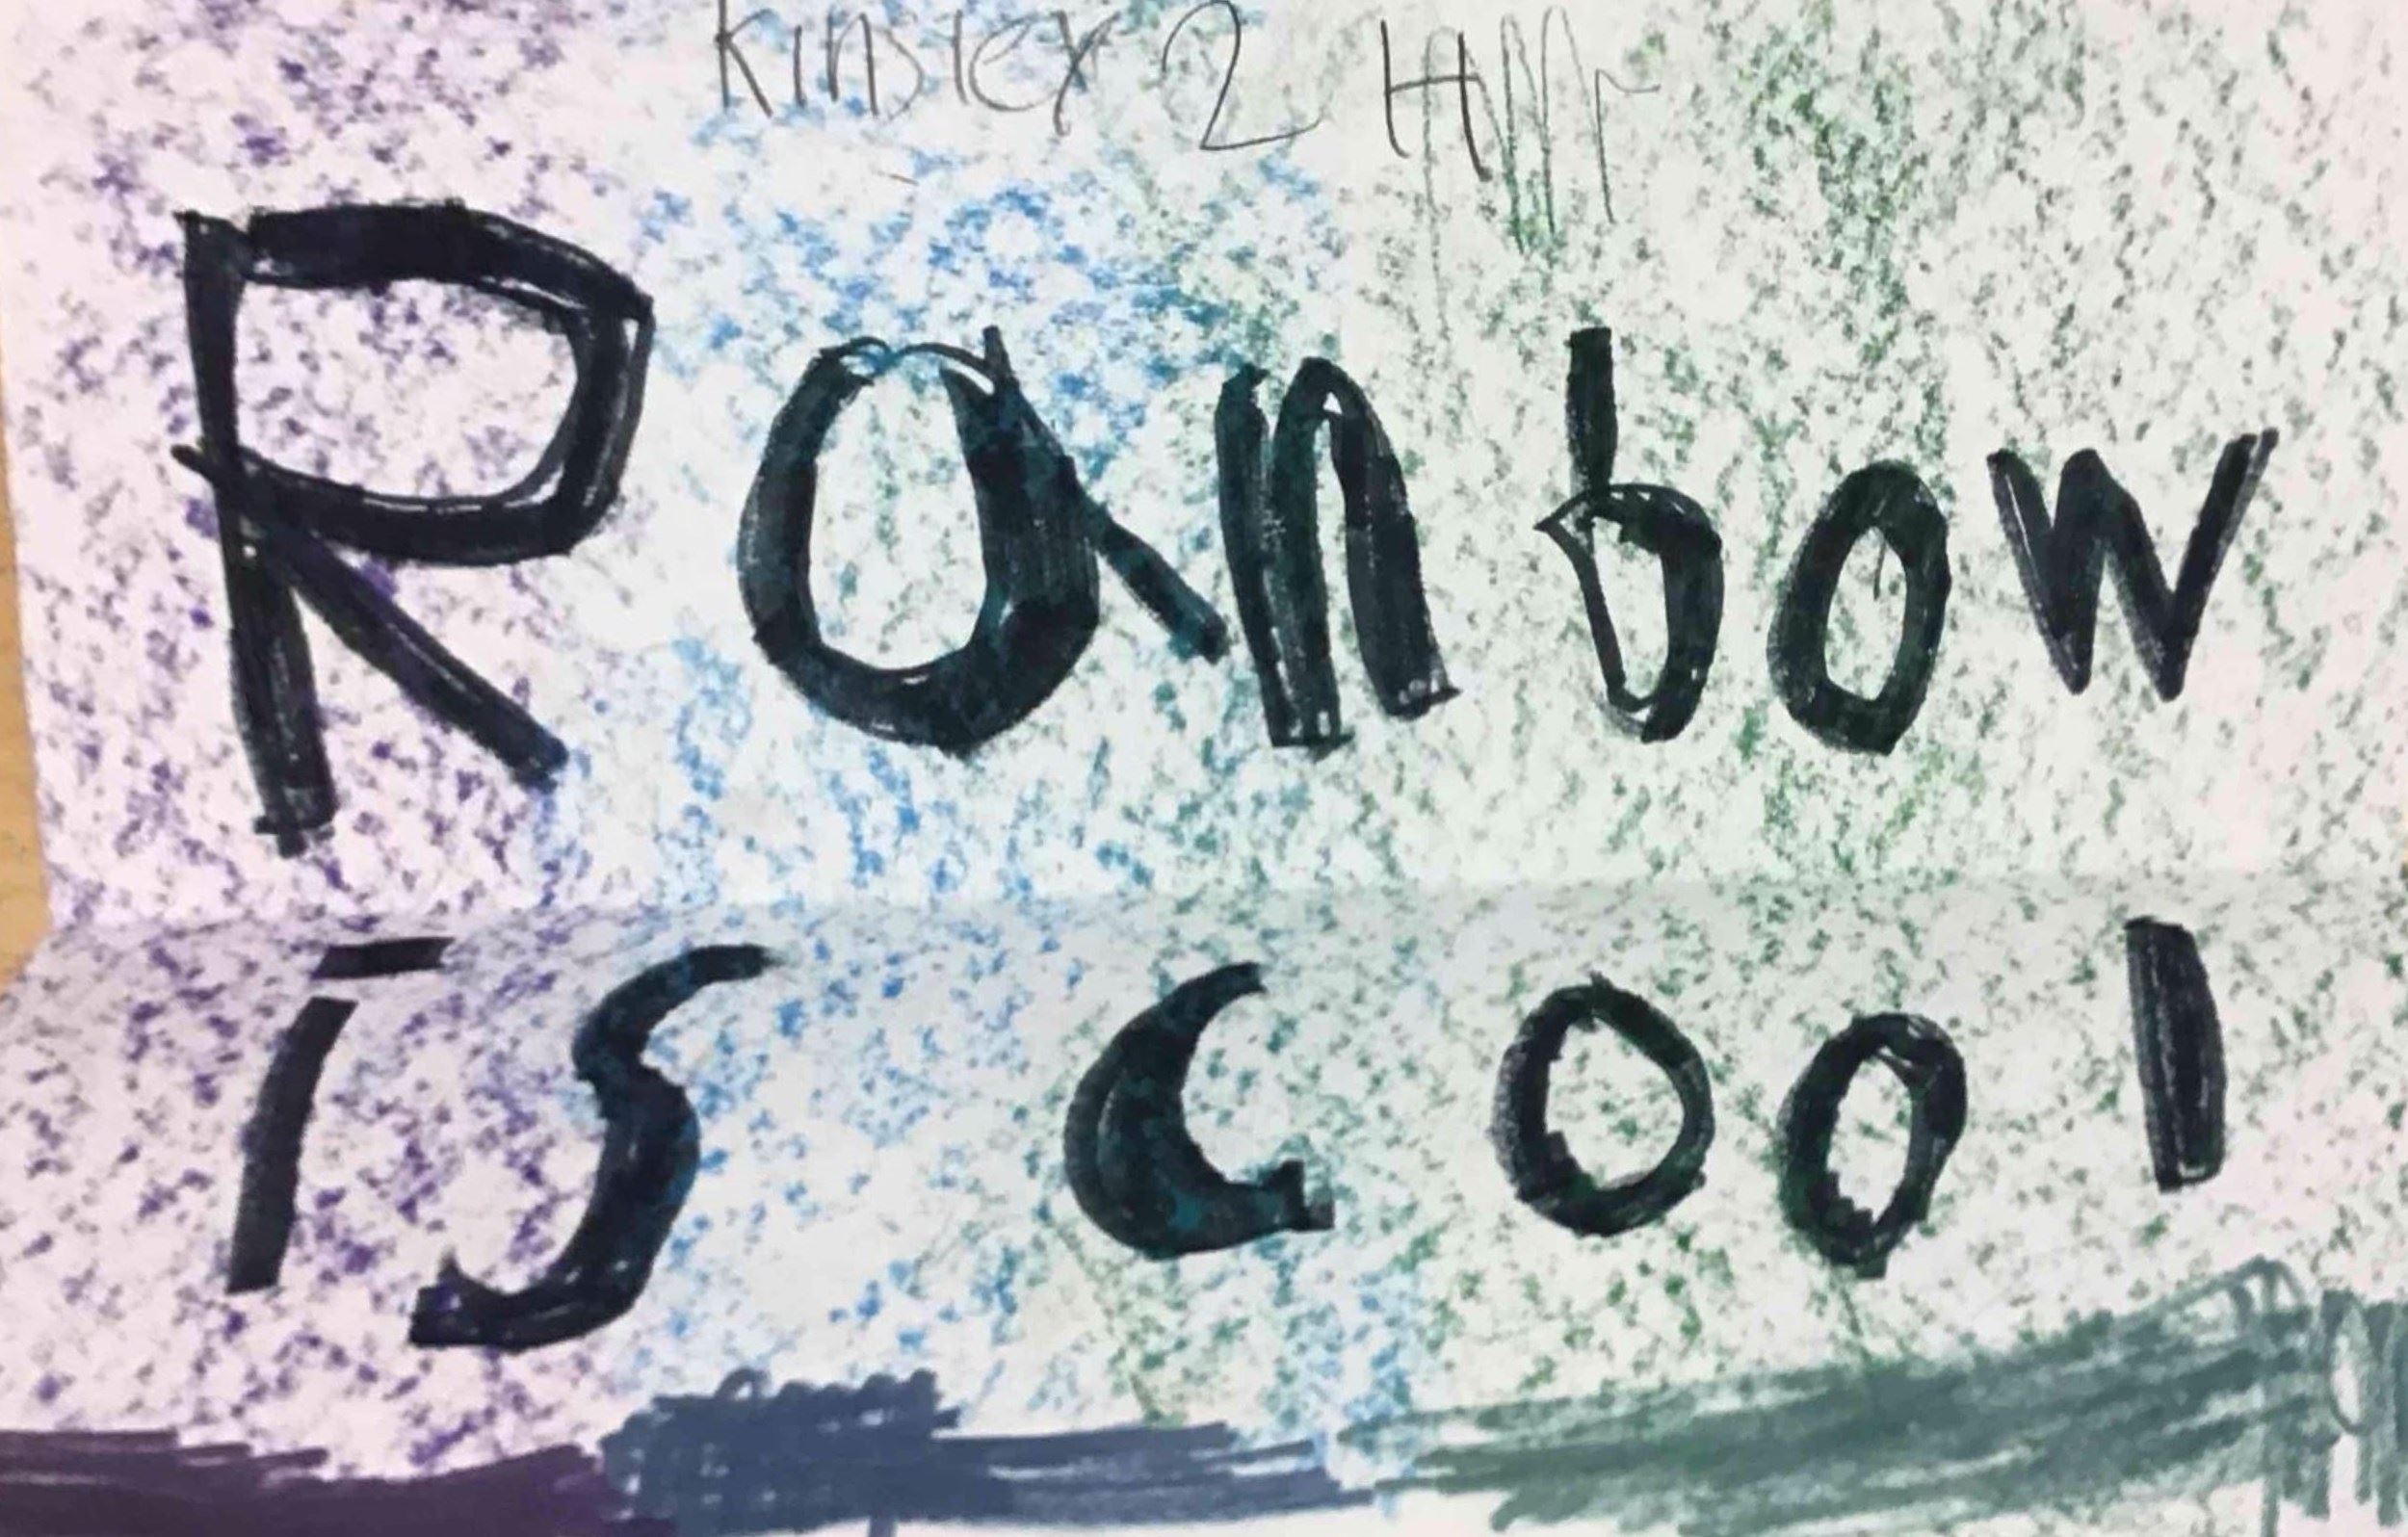 Kinsler 2
Ranbow
is cool